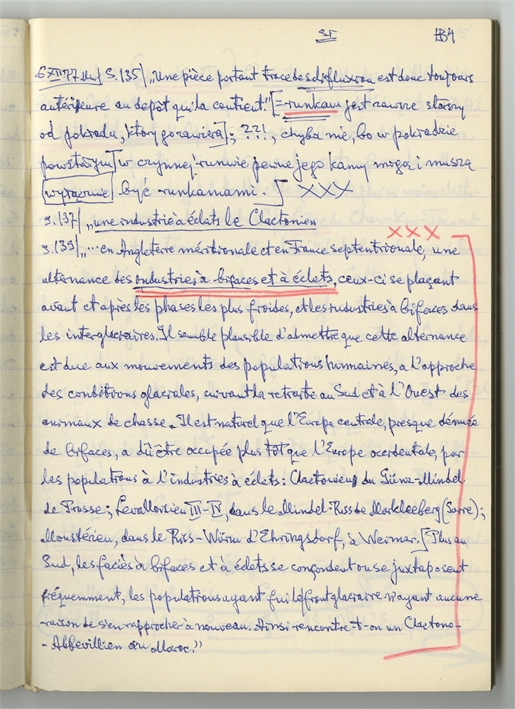 51 134
S.135/ „Une pièce portant traces de solifluxion est donc toujours
antérieure au dépôt qui la contient." [= runkam jest zawsze starszy
od pokładu, który go zawiera]; ??!, chyba nie, bo w pokładzie
powstałym w czynnej runwie pewne jego kamy mogą i muszą
być runkamami.] XXX
S.137/ „une industrie à éclats le Clactonien
XXX
S.139/ „... en Angleterre méridionale et en France septentrionale, une
alternance des industries à bifaces et à éclats, ceux-ci se plaçant
avant et après les phases les plus froides, et les industries à bifaces dans
les interglaciaires. Il semble plausible d'admettre que cette alternance
est due aux mouvements des populations humaines, a l'approche
des conditions glaciales, suivant la retraite au Sud et à l'Ouest des
animaux de chasse. Il est naturel que l'Europe centrale, presque dénuée
de bifaces, a dû être occupée plus tôt que l'Europe occidentale, par
les populations à l'industries à éclats: Clactonien du Günz-Mindel
de Prusse; Levalloisien III-IV, dans le Mindel-Riss de Markleeberg (Sarre);
Moustérien, dans le Riss-Würm d'Ehringsdorf, à Weimar.] Plus au
Sud, les faciès à bifaces et à éclats se confondent ou se juxtaposent
fréquemment, les populations ayant fui le front glaciaire n'ayant aucune
raison de s'en rapprocher à nouveau. Ainsi rencontre-t-on un Clactono-
-Abbevillien au Maroc."